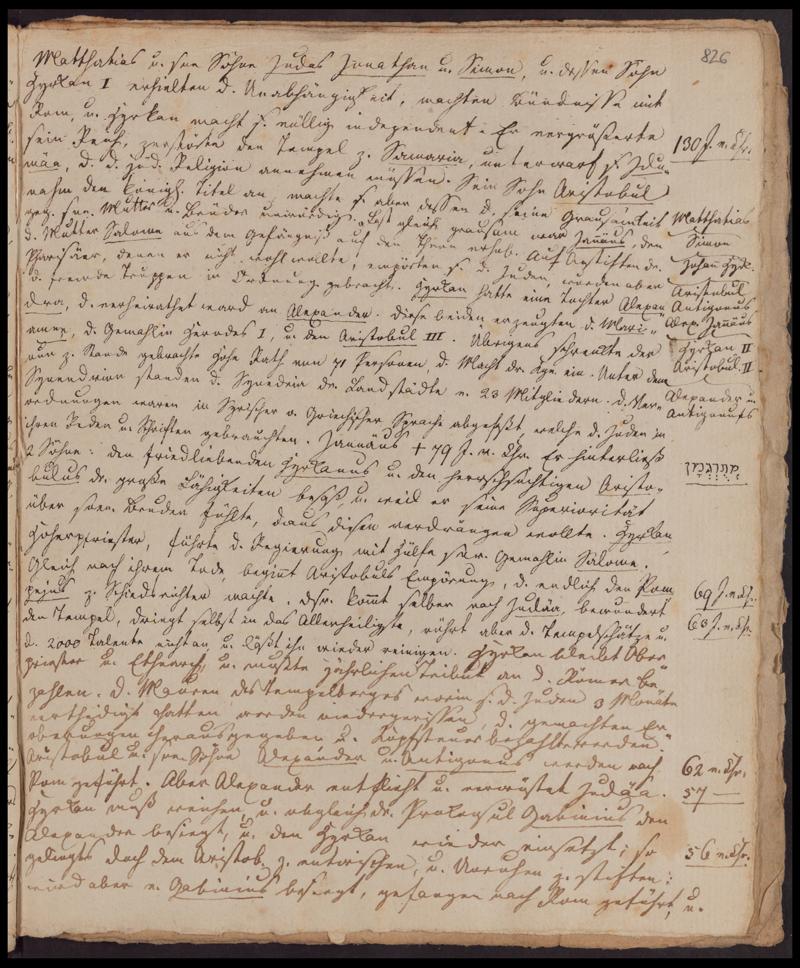 826
Matthatias u. sne Söhne Judas Jonathan u. Simon, u. dessen Sohn
Hyrkan I erhielten d. Unabhängigkeit, machten Bündnisse mit
Rom, u. Hyrkan macht s. völlig independent. Er vergrößerte
sein Reich, zerstörte den Tempel z. Samaria, unterwarf s. Idu-
130 J. v. Chr.
mäa, d. d. jüd. Religion annehmen müssen. Sein Sohn Aristobul
nahm den königl. Titel an, machte s. aber dessen d. seine Grausamkeit
geg. sne. Mutter u. Brüder unwürdig. Fast gleich grausam war Jannäus, den
d. Mutter Salome aus dem Gefängniß auf den Thron erhob. Auf Anstiften dr.
Pharisäer, denen er nicht wohl wollte, empörten s. d. Juden, wurden aber
d. fremde Truppen in Ordnung gebracht. Hyrkan hatte eine Tochter Alexan-
dra, d. verheirathet ward an Alexander. Diese beiden erzeugten d. Mari-
amne, d. Gemahlin Herodes I, u. den Aristobul III. Übrigens schränkte der
nun z. Stande gebrachte hohe Rath von 71 Personen, d. Macht dr. Kge. ein. Unter dem
Synendrion standen d. Synedria dr. Landstädte v. 23 Mitgliedern. d. Ver-
ordnungen waren in Syrischer o. Griechischer Sprache abgefaßt, welche d. Juden in
ihren Reden u. Schriften gebrauchten. Jannäus + 79 J. v. Chr. Er hinterließ
2 Söhne: den friedliebenden Hyrkanus u. den herrschsüchtigen Aristo-
bulus dr. große Fähigkeiten besaß, u. weil er seine Superiorität
über snen Bruder fühlte, daus diesen verdrängen wollte. Hyrkan,
Hoherpriester, führte d. Regierung mit Hülfe snr. Gemahlin Salome.
Gleich nach ihrem Tode beginnt Aristobuls Empörung, d. endlich den Pom-
pejus z. Schiedsrichter machte. dsr. kommt selber nach Judäa, bewundert
den Tempel, dringt selbst in das Allerheiligste, rührt aber d. Tempelschätze u.
d. 2000 Talente nicht an, u. läßt ihn wieder reinigen. Hyrkan bleibt Ober-
priester u. Ethnarch, u. mußte jährlichen Tribut an d. Römer be-
zahlen. d. Mauren des Tempelberges worin s. d. Juden 3 Monate
vertheidigt hatten, werden niedergerissen, d. gemachten Er-
oberungen herausgegeben u. Kopfsteuer bezahlt werden.
Aristobul u. sne Söhne Alexander u. Antigonus werden nach
Rom geführt. Aber Alexander entflieht u. verwüstet Judäa.
Hyrkan muß weichen, u. obgleich dr. Prokonsul Gabinius den
Alexander besiegt, u. den Hyrkan wieder einsetzt; so
gelingts doch dem Aristob. z. entwischen, u. Unruhen z. stiften:
wird aber v. Gabinius besiegt, gefangen nach Rom geführt, u.
Matthatias
Simon
Johann Hyrk.
Aristobul
Antigonus
Alex. Jannäus
Hyrkan II
Aristobul. II
Alexander u.
Antigonus
69 J. v. Chr.
63 J. v. Chr.
62 v. Chr.
57 —
56 v. Chr.